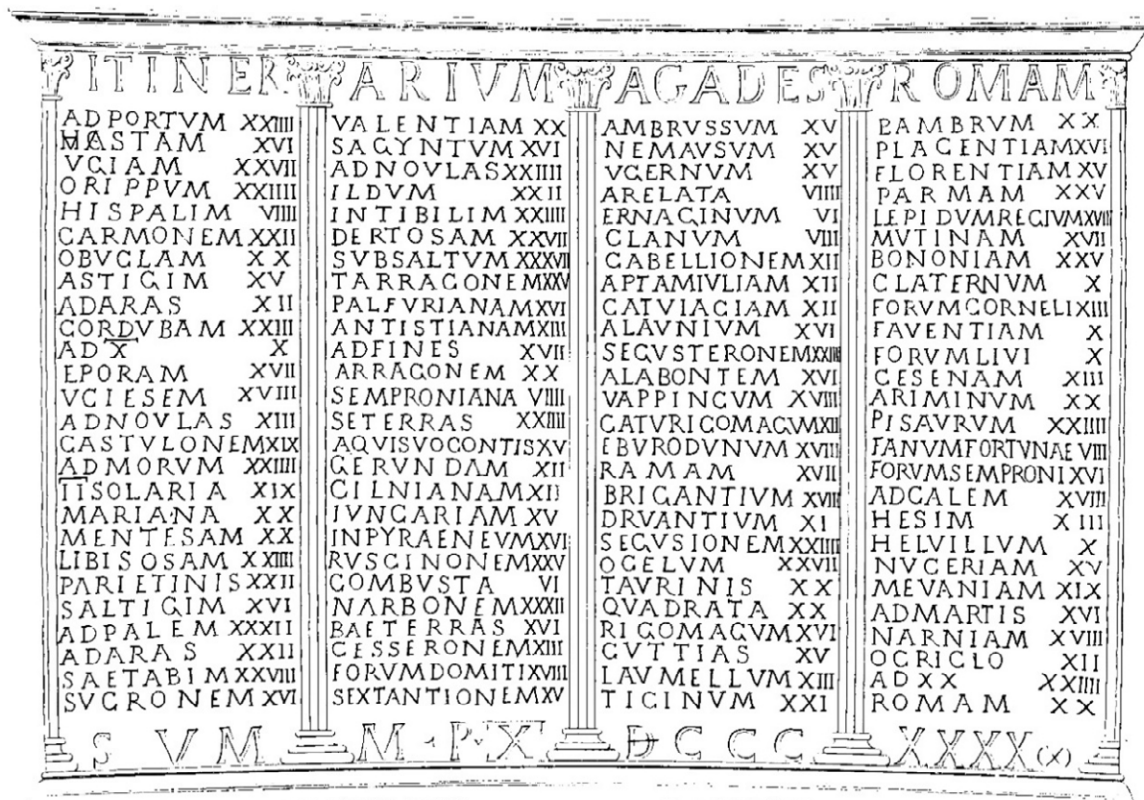 ITINERARIVM AGADES ROMAM
ADPORTVM XXIIII
HASTAM XVI
VGIAM XXVII
ORIPPVM XXIIII
HISPALIM VIIII
CARMONEM XXII
OBVCLAM XX
ASTIGIM XV
ADARAS XII
CORDVBAM XXIII
AD X X
EPORAM XVII
VCIESEM XVIII
ADNOVLAS XIII
CASTVLONEM XIX
ADMORVM XXIIII
II SOLARIA XIX
MARIANA XX
MENTESAM XX
LIBISOSAM XXIIII
PARIETINIS XXII
SALTIGIM XVI
ADPALEM XXXII
ADARAS XXII
SAETABIM XXVIII
SVCRONEM XVI
VALENTIAM XX
SAGYNTVM XVI
ADNOVLAS XXIIII
ILDVM XXII
INTIBILIM XXIIII
DERTOSAM XXVII
SVBSALTVM XXXVII
TARRACONEM XXV
PALFVRIANAM XVI
ANTISTIANAM XIII
ADFINES XVII
ARRAGONEM XX
SEMPRONIANA VIIII
SETERRAS XXIIII
AQVISVOCONTIS XV
GERVNDAM XII
CILNIANAM XII
IVNCARIAM XV
INPYRAENEVM XVI
RVSCINONEM XXV
COMBVSTA VI
NARBONEM XXXII
BAETERRAS XVI
CESSERONEM XIII
FORVMDOMITI XVIII
SEXTANTIONEM XV
AMBRVSSVM XV
NEMAVSVM XV
VGERNVM XV
ARELATA VIIII
ERNAGINVM VI
GLANVM VIII
CABELLIONEM XII
APTAMIVLIAM XII
CATVIACIAM XII
ALAVNIVM XVI
SEGVSTERONEM XXIIII
ALABONTEM XVI
VAPPINCVM XVIII
CATVRICOMAGVM XII
EBVRODVNVM XVIII
RAMAM XVII
BRIGANTIVM XVIII
DRVANTIVM XI
SEGVSIONEM XXIIII
OCELVM XXVII
TAVRINIS XX
QVADRATA XX
RIGOMAGVM XVI
CVTTIAS XV
LAVMELLVM XIII
TICINVM XXI
PAMBRVM XX
PLACENTIAM XVI
FLORENTIAM XV
PARMAM XXV
LEPIDVMREGIVM XVIII
MVTINAM XVII
BONONIAM XXV
CLATERNVM X
FORVMCORNELI XIII
FAVENTIAM X
FORVMLIVI X
CESENAM XIII
ARIMINVM XX
PISAVRVM XXIIII
FANVMFORTVNAE VIII
FORVMSEMPRONI XVI
ADCALEM XVIII
HESIM XIII
HELVILLVM X
NVCERIAM XV
MEVANIAM XIX
ADMARTIS XVI
NARNIAM XVIII
OCRICLO XII
ADXX XXIIII
ROMAM XX
SVM M·P·X DCCC XXXX(X)